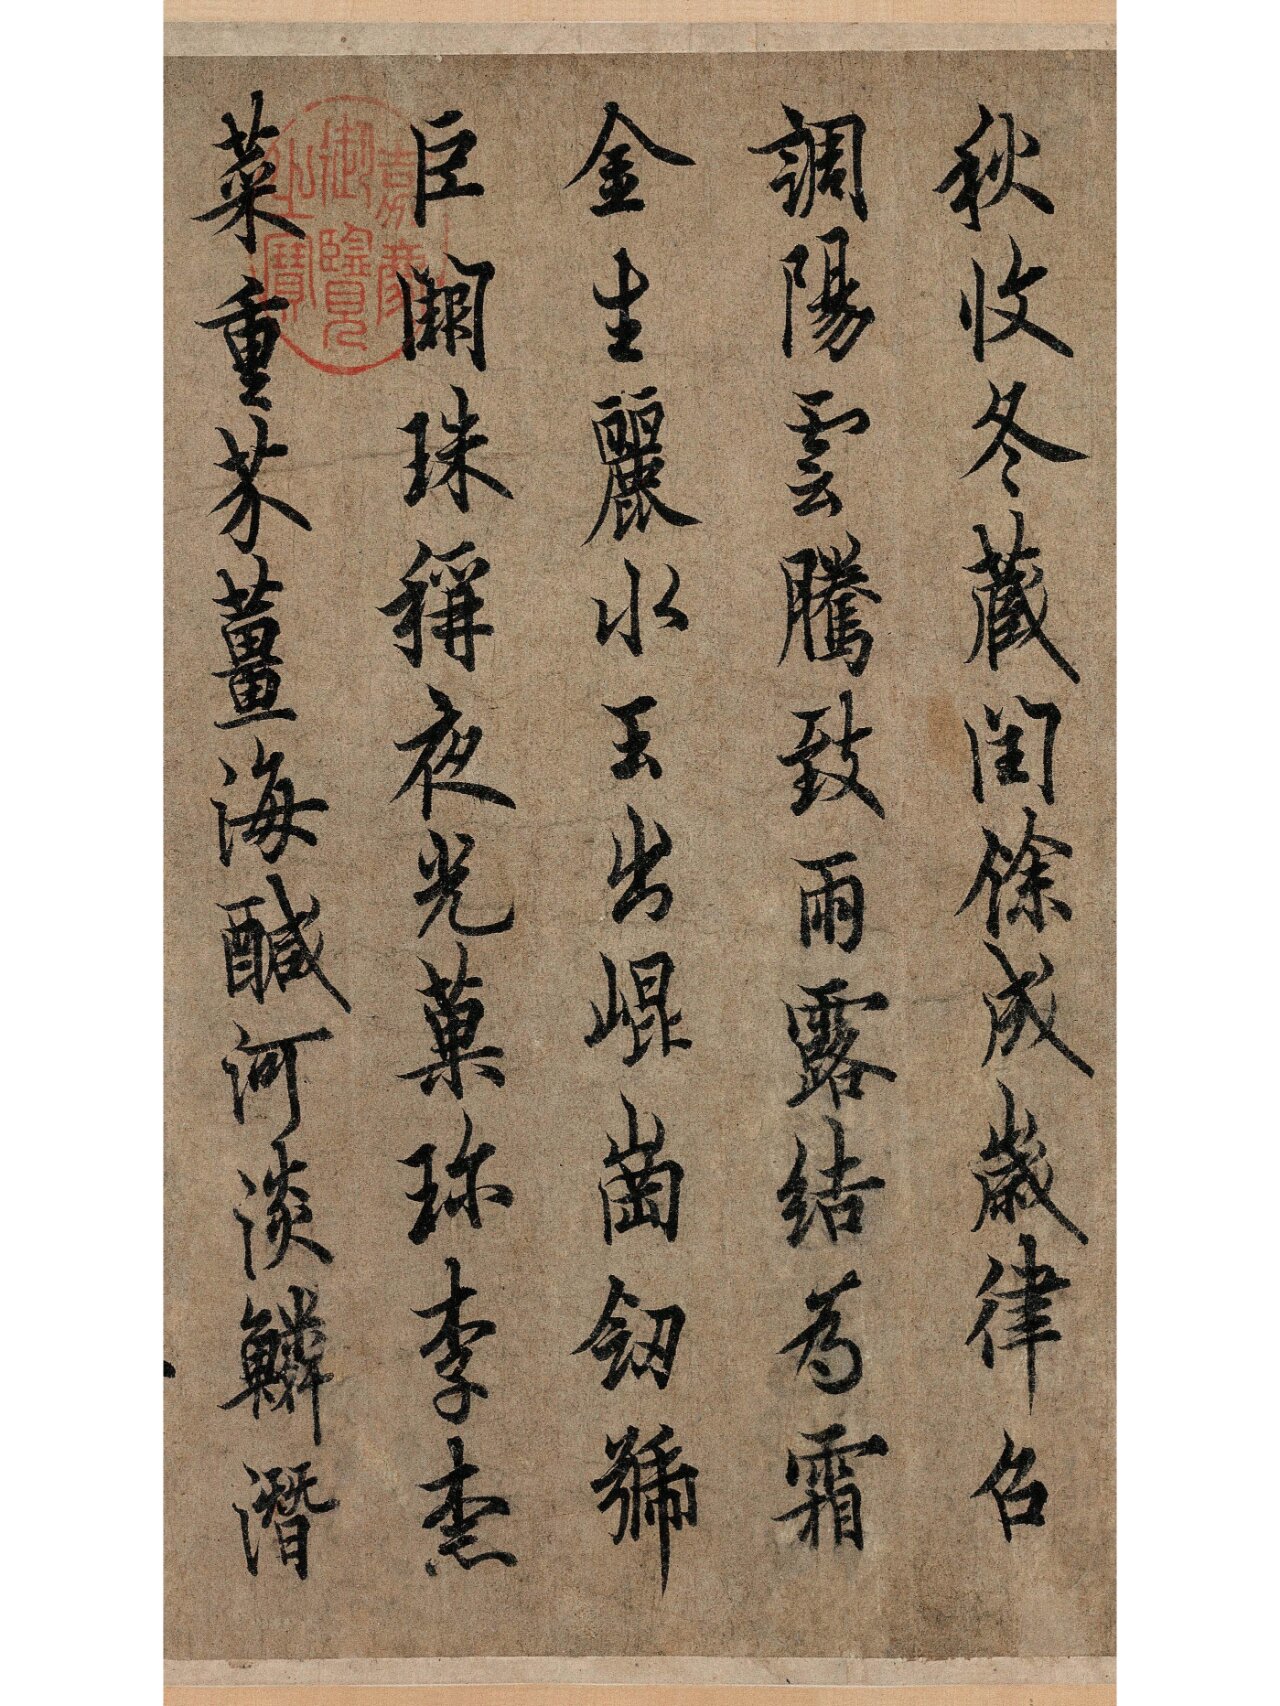 秋收冬藏閏餘成歲律召
調陽雲騰致雨露結為霜
金生麗水玉出崐崗釼號
巨闕珠稱夜光菓珎李柰
菜重芥薑海鹹河淡鱗潛
嘉慶御覽之寶